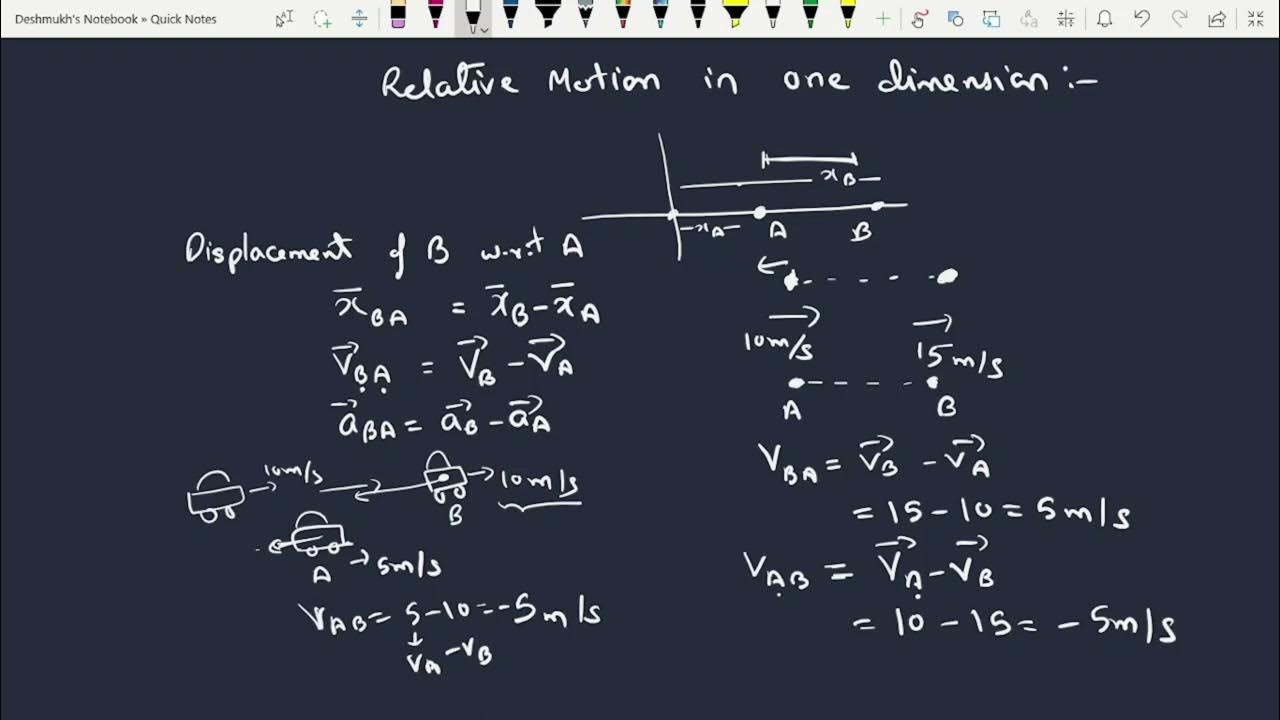 Deshmukh's Notebook » Quick Notes
Relative Motion in one dimension :-
x_B
-x_A-
A
B
Displacement of B w.r.t A
x̄_BA = x̄_B - x̄_A
V⃗_BA = V⃗_B - V⃗_A
a⃗_BA = a⃗_B - a⃗_A
10m/s
10m/s
B
A
5m/s
V_AB = 5-10 = -5m/s
V_A - V_B
10m/s
15m/s
A
B
V_BA = V⃗_B - V⃗_A
= 15 - 10 = 5m/s
V_AB = V⃗_A - V⃗_B
= 10 - 15 = - 5m/s